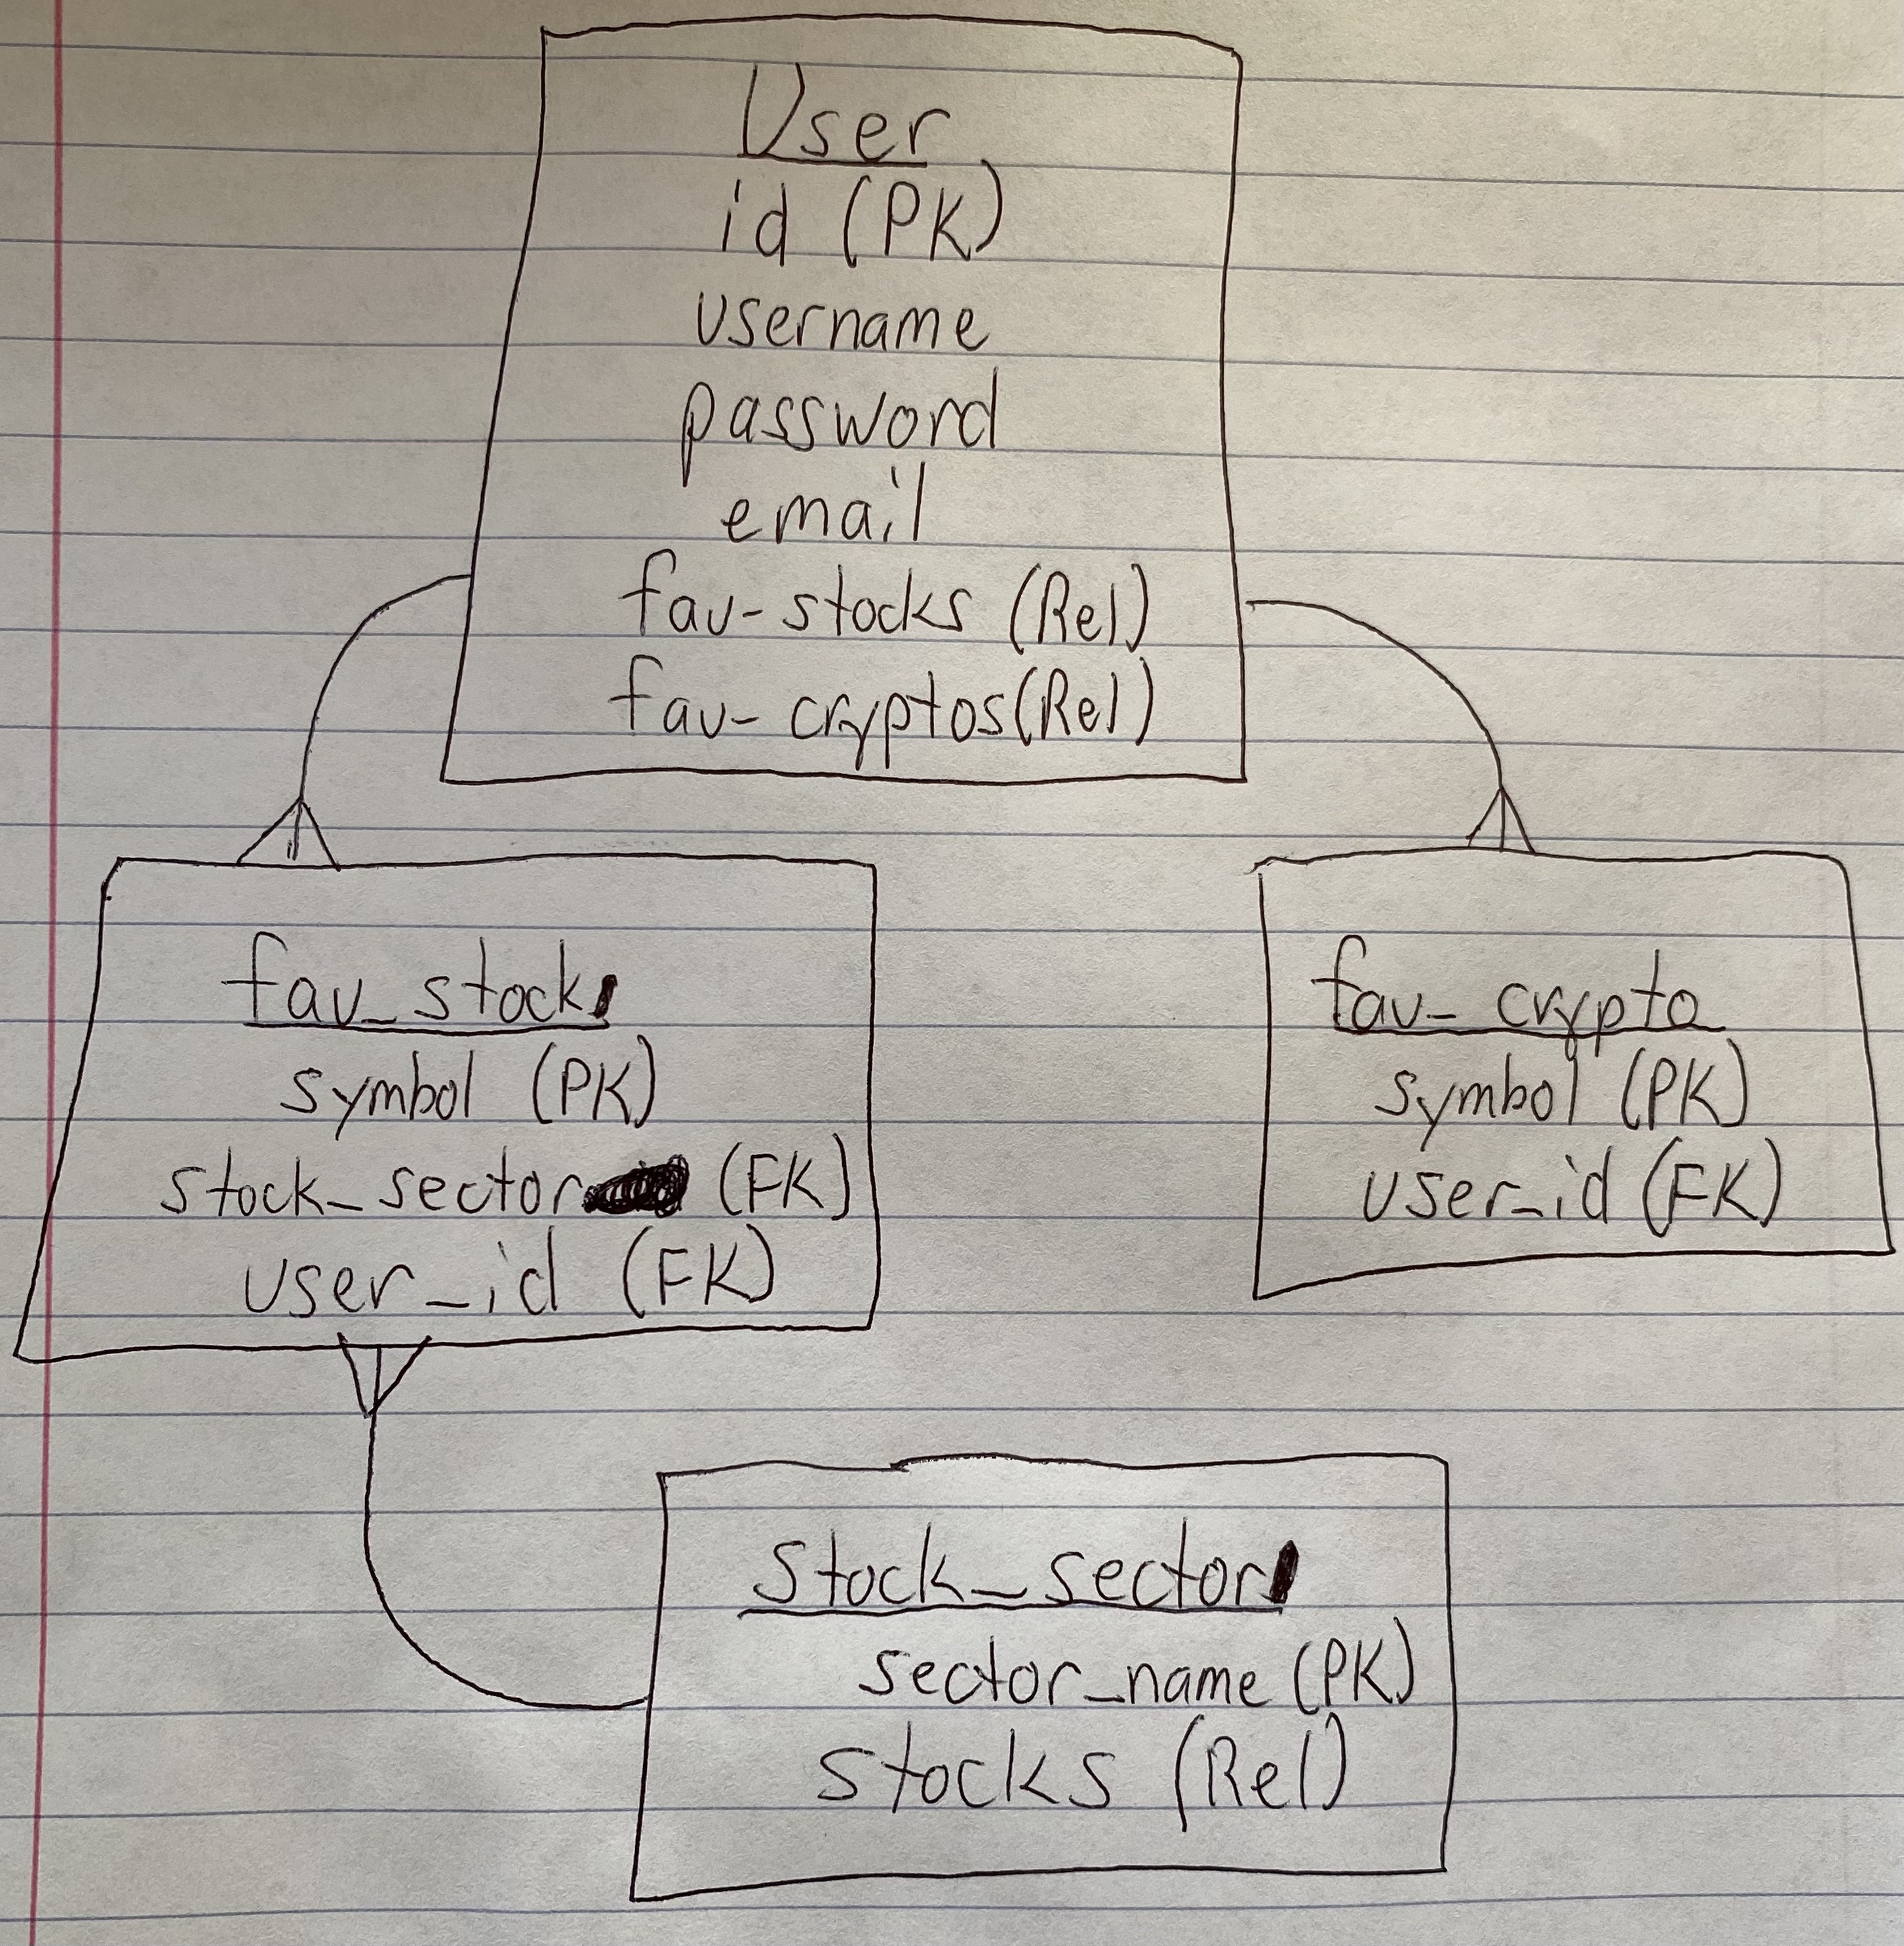 User
id (PK)
username
password
email
fav-stocks (Rel)
fav-cryptos (Rel)
fav_stock
symbol (PK)
stock_sector (FK)
user_id (FK)
fav-crypto
symbol (PK)
user_id (FK)
stock_sector
sector_name (PK)
stocks (Rel)